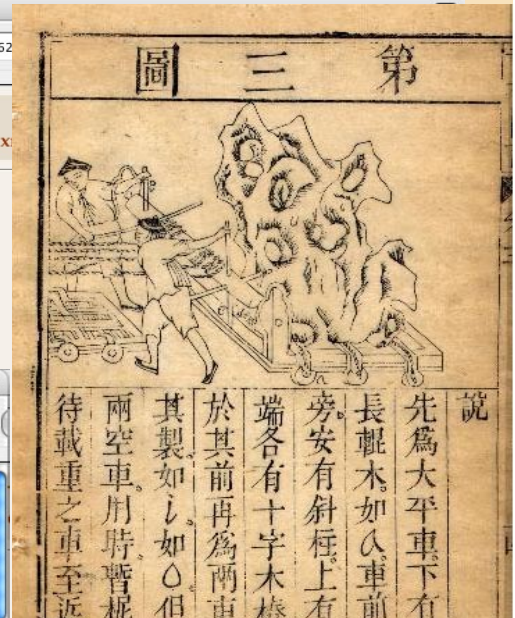 第三圖
說
先爲大平車。下有
長輥木。如乀。車前
旁。安有斜柱。上有
端各有十字木樁
於其前再爲兩車
其製。如i。如〇。但
兩空車。用時。暫柅
待載重之車至近
62